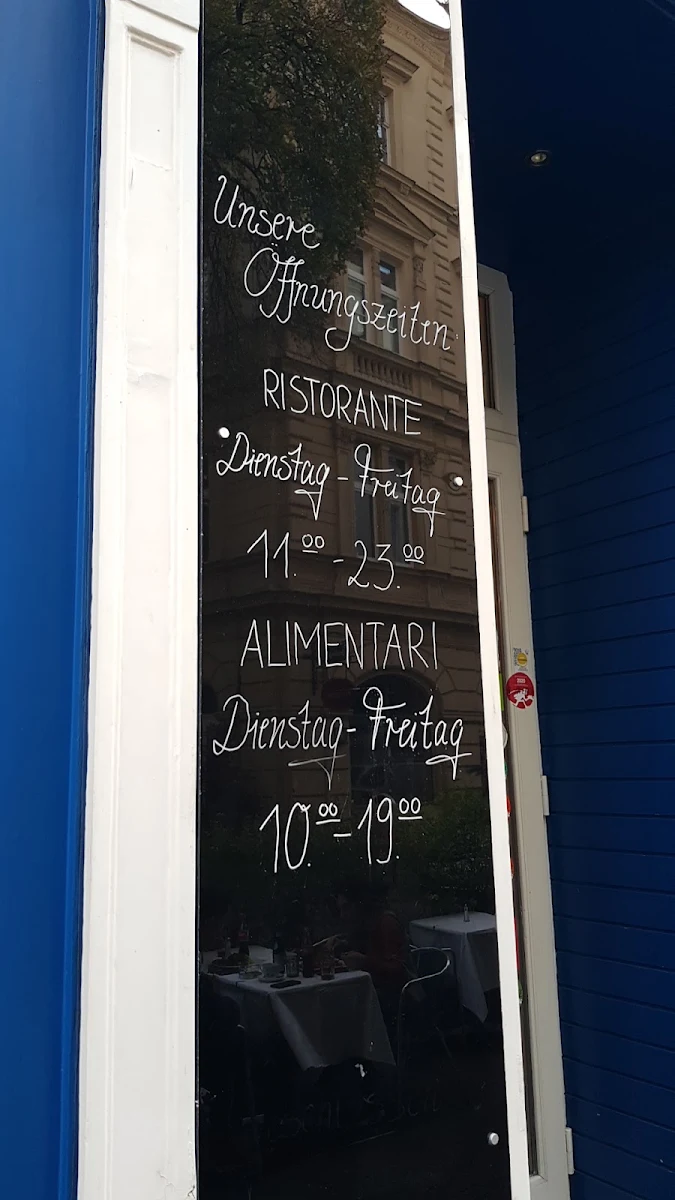 Unsere
Öffnungszeiten:
RISTORANTE
Dienstag - Freitag
11.00 - 23.00
ALIMENTARI
Dienstag - Freitag
10.00 - 19.00